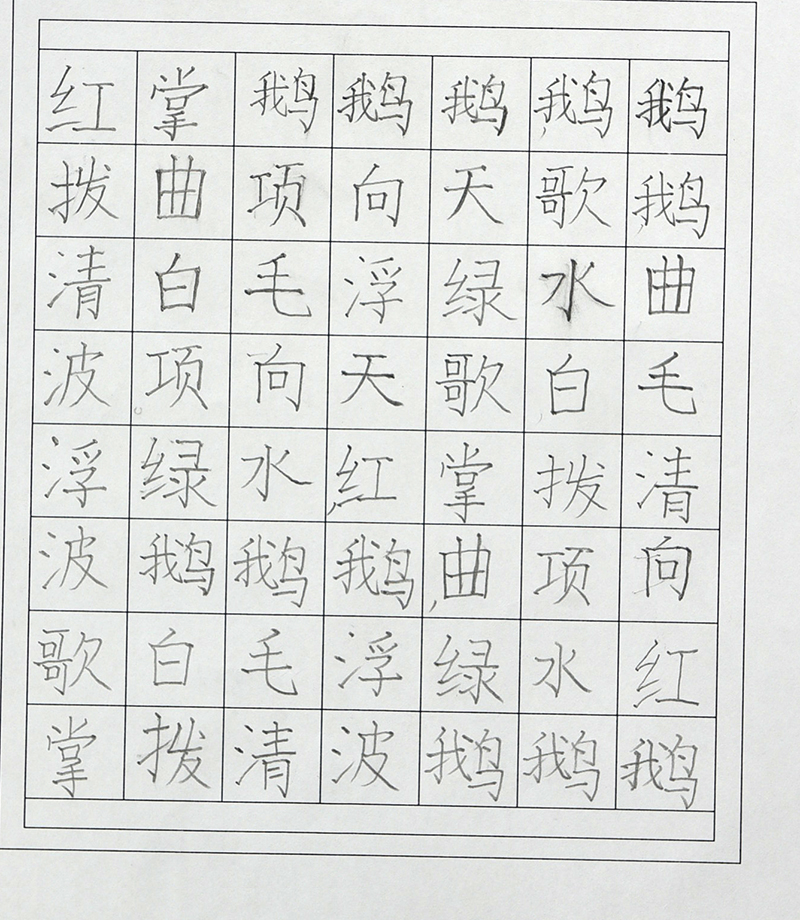 红掌鹅鹅鹅鹅鹅
拨曲项向天歌鹅
清白毛浮绿水曲
波项向天歌白毛
浮绿水红掌拨清
波鹅鹅鹅曲项向
歌白毛浮绿水红
掌拨清波鹅鹅鹅